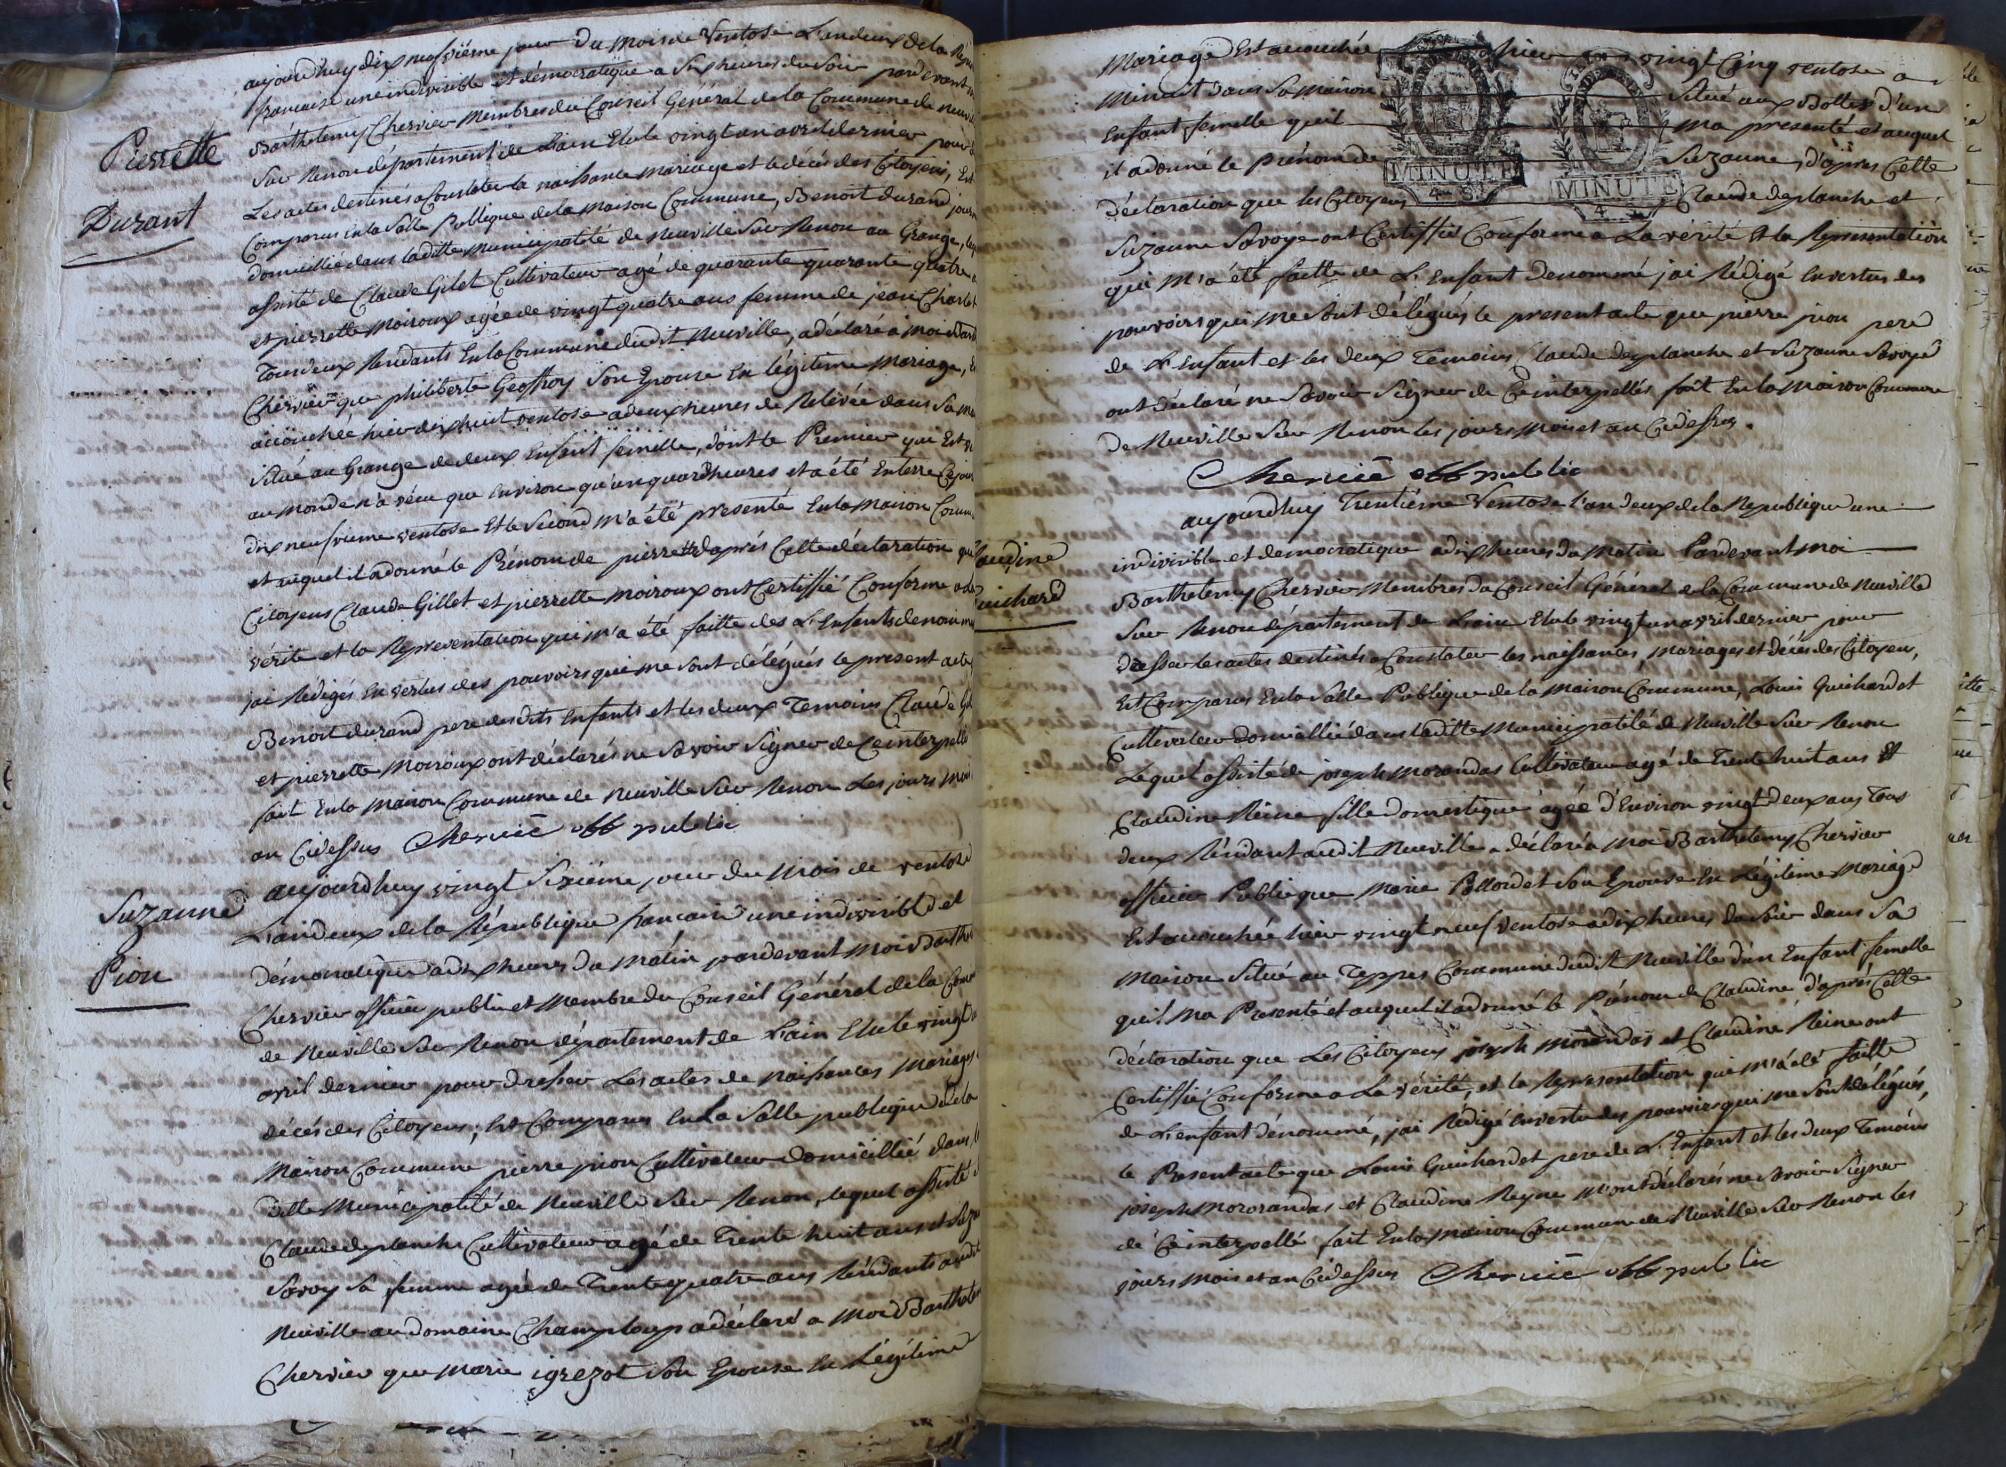 Pierrette
Durant
aujourdhuy dix neufvième jour du mois de Ventose L'an deux de la Répu
francaise une indivisible et démocratique a six heures du soir pardevant
Barthelemy Chervier Membres du Conseil Général de la Commune de neuv
sur Renon département de L'ain Elu le vingt un avril dernier pour
Les actes destinés a Constater la naissance mariage et le décès des Citoyens, Est
Comparus En la Salle Publique de la Maison Commune, Benoit durand jour
domicillié dans laditte Municipalité de Neuville sur Renon au Grange, leq
assisté de Claude Gilet Cultivateur agé de quarante quarante quatre a
et pierrette Moiroux agée de vingt quatre ans femme de jean Charlet
Tous deux Résidants En la Commune dudit Neuville, a déclaré à moi Bart
Chervier que philiberte Geoffroy Son Epouse En légitime Mariage, E
accouchée hier dix huit ventose a deux heures de Relévée dans Sa m
situé au Grange de deux Enfant femelle, dont le Premier qui Est
au monde n'a vécu que Environ qu'un quard'heures et a été Enterré Cejou
dix neufvieme ventose Et le Second M'a été présenté En la Maison Comm
et auquel il a donné le Prénom de pierrette d'après Cette déclaration que
Citoyens Claude Gillet et pierrette moiroux ont Certiffié Conforme a la
vérité et la Representation qui m'a été faitte des L'Enfants denomm
jai Rédigés En vertus des pouvoirs qui me sont délégués le present acte
Benoit durand pere desdits Enfants et les deux Temoins Claude Gil
et pierrette Moiroux ont déclarés ne Savoir Signer de Ce interpellé
fait En la Maison Commune de Neuville Sur Renon Les jours moi
an Cidessus Chervié off public
Suzanne
Pion
aujourdhuy vingt Sixième jour du Mois de ventose
L'an deux de la République francaise une indivisible et
démocratique a dix heures du Matin pardevant Moi Barthe
Chervier officier public et Membre du Conseil Général de la Com
de Neuville Sur Renon département de L'ain Elu le vingt u
avril dernier pour dresser Les actes de naissances Mariages
décès des Citoyens, Est Comparus En La Salle publique de la
Maison Commune pierre pion Cultivateur domicillié dans l
ditte Municipalité de Neuville Sur Renon, lequel assisté
Claude deplanche Cultivateur agé de Trente huit ans et Suz
Savoy Sa femme agée de Trente quatre ans Résidants audit
Neuville au domaine Champloup a déclaré a Moi Barthele
Chervier que Marie igrezot Son Epouse En Légitime
Mariage Est accouchée hier vingt Cinq ventose a
Minuit dans Sa Maison Situé aux Bottes d'un
Enfant femelle qu'il Ma presenté et auquel
il a donné le Prénom de Suzanne, d'après Cette
déclaration que les Citoyens Claude deplanche et
Suzanne Savoye ont Certiffié Conforme a La vérité Et la Representation
qui M'a été faitte de L'Enfant denommé jai Rédigé En vertus des
pouvoirs qui me sont délégués le present acte que pierre pion pere
de L'Enfant et les deux Temoins Claude deplanche et Suzanne Savoye
ont déclaré ne Savoir Signer de Ce interpellés fait En la Maison Commune
de Neuville Sur Renon les jours Mois et an Cidessus.
Chervié off public
MINUTE
MINUTE
audine
uichard
aujourdhuy Trentième Ventose l'an deux de la Republique une
indivisible et democratique a dix heures du Matin Pardevant moi
Barthelemy Chervier Membres du Conseil Général de la Commune de Neuville
Sur Renon département de L'ain Elu le vingt un avril dernier pour
dresser les actes destinés a Constater les naissances, Mariages et décès des Citoyens,
Est Comparus En la Salle Publique de la Maison Commune, Louis Guichardet
Cultivateur domicillié dans laditte Municipalité de Neuville Sur Renon
Lequel assisté de joseph Morandas Cultivateur agé de Trente huit ans Et
Claudine Reine fille domestique agée d'Environ vingt deux ans Tous
deux Résidant audit Neuville a déclaré a Moi Barthelemy Chervier
officier Public que Marie Pollordet Son Epouse En Légitime Mariage
Est accouchée hier vingt neuf ventose a dix heures du Soir dans Sa
Maison Situé au Teppes Commune dudit Neuville d'un Enfant femelle
qu'il Ma Presenté et auquel il a donné le Prénom de Claudine d'après Cette
déclaration que Les Citoyens joseph Morandas et Claudine Reine ont
Certiffié Conforme a La vérité, et la Representation qui m'a été faitte
de L'enfant dénommé, jai Rédigé En vertu des pouvoirs qui me sont délégués,
le Present acte que Louis Guichardet pere de L'Enfant et les deux Temoins
joseph Mororandas et Claudine Reyne M'ont déclarés ne Savoir Signer
de Ce interpellé fait En la Maison Commune de Neuville Sur Renon les
jours Mois et an Cidessus Chervié off public